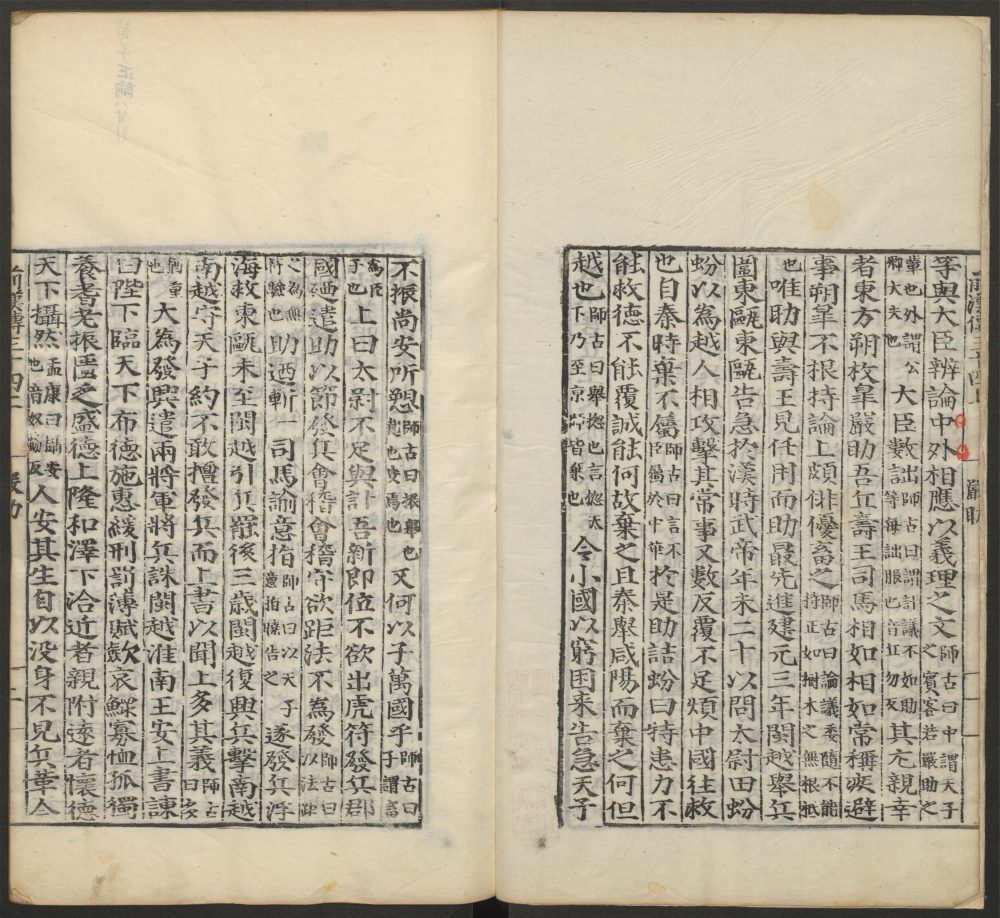 前漢傳三十四上 嚴助
等與大臣辨論中外相應以義理之文師古曰中謂天子之賓客若嚴助之
輩也外謂公卿大夫也大臣數詘師古曰謂計議不如助等每詘服也音丘勿反其尤親幸
者東方朔枚皋嚴助吾丘壽王司馬相如相如常稱疾避
事朔皋不根持論上頗俳優畜之師古曰論議委隨不能持正如樹木之無根柢
也唯助與壽王見任用而助最先進建元三年閩越舉兵
圍東甌東甌告急於漢時武帝年未二十以問太尉田蚡
蚡以為越人相攻擊其常事又數反覆不足煩中國往救
也自秦時棄不屬師古曰言不臣屬於中華於是助詰蚡曰特患力不
能救德不能覆誠能何故棄之且秦舉咸陽而棄之何但
越也師古曰舉揔也言揔天下乃至京師皆棄也今小國以窮困来告急天子
不振尚安所愬師古曰振舉也也安焉也又何以子萬國乎師古曰子謂畜
為臣子也上曰太尉不足與計吾新即位不欲出虎符發兵郡
國迺遣助以節發兵會稽會稽守欲距法不為發師古曰以法距
之為無符驗也助迺斬一司馬諭意指師古曰以天子意指曉告之遂發兵浮
海救東甌未至閩越引兵罷後三歲閩越復興兵擊南越
南越守天子約不敢擅發兵而上書以聞上多其義師古曰多
猶重也大為發興遣兩將軍將兵誅閩越淮南王安上書諫
曰陛下臨天下布德施惠緩刑罰薄賦歛哀鰥寡恤孤獨
養耆老振匱乏盛德上隆和澤下洽近者親附遠者懷德
天下攝然孟康曰攝安也音奴協反人安其生自以没身不見兵革今
前漢傳三十四上 嚴助